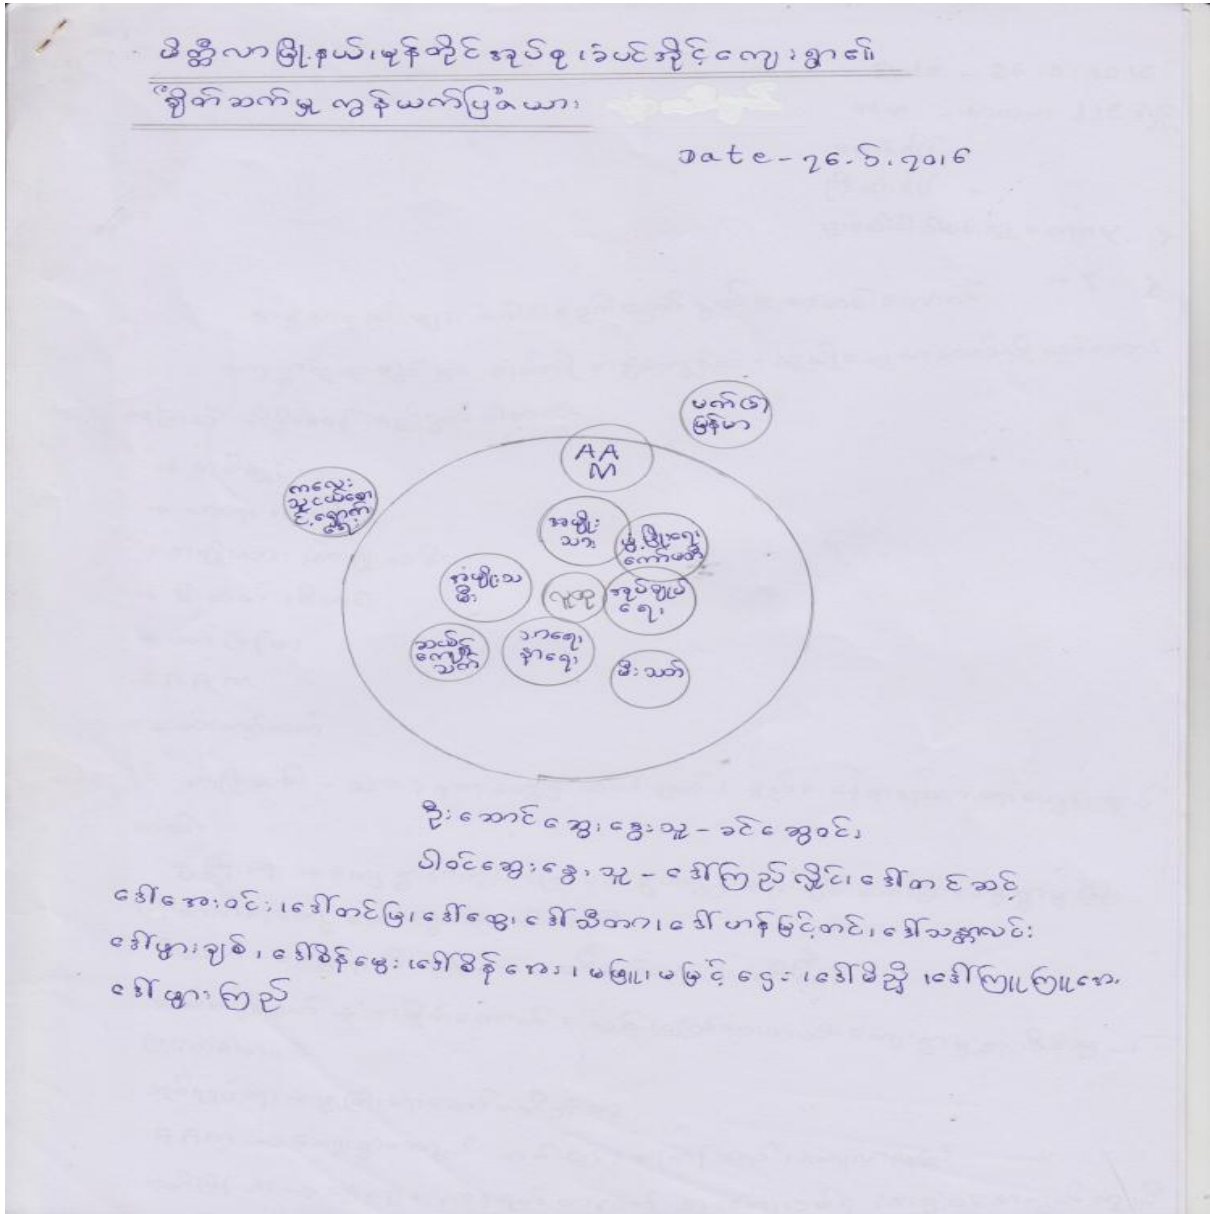 မိတ္ထီလာမြို့နယ်၊မုန်တိုင်အုပ်စု၊ခံပင်အိုင့်ကျေးရွာ၏
"ချိတ်ဆက်မှု ကွန်ယက်ပြဇယား
Date - 26.5.2016
မက်တ္တာ
မြန်မာ
AA
M
ကလေး
သူငယ်စော
င့်ရှောက်
ရေး
အမျိုး
သား
ဖွံ့ဖြိုးရေး
ကော်မတီ
အမျိုးသ
မီး
လူထု
အုပ်ချုပ်
ရေး
ဆယ်စု
ကျော်
သက်
သာရေး
နာရေး
မီးသတ်
ဦးဆောင်ဆွေးနွေးသူ - ခင်ဆွေဝင်း
ပါဝင်ဆွေးနွေးသူ - ဒေါ်ကြည်လှိုင်၊ ဒေါ်တင်ဆင့်
ဒေါ်အေးဝင်း၊ ဒေါ်တင်မြ၊ ဒေါ်ထွေး၊ ဒေါ်သီတာ၊ ဒေါ်ဟန်မြင့်တင်၊ ဒေါ်သန္တာလင်း
ဒေါ်ဖွားချစ်၊ ဒေါ်စိန်မွေး၊ ဒေါ်စိန်အေး၊ မဖြူ၊ မမြင့်ဌေး၊ ဒေါ်မိညို၊ ဒေါ်ကြူကြူအေး
ဒေါ်ဖွားကြည်